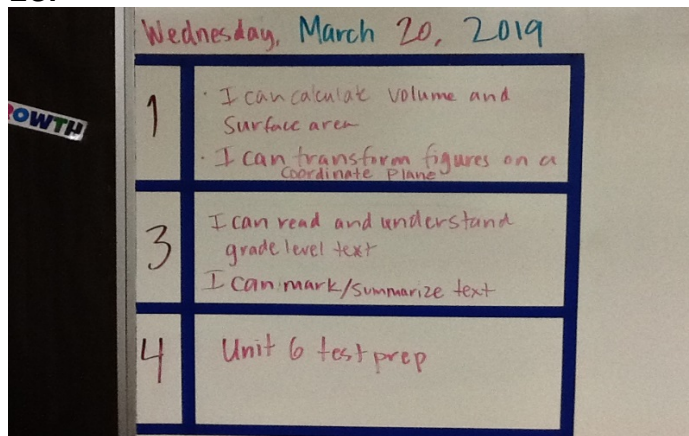 Wednesday, March 20, 2019
OWTH
1
· I can calculate volume and
surface area
· I can transform figures on a
coordinate plane
3
I can read and understand
grade level text
I can mark/summarize text
4
Unit 6 test prep